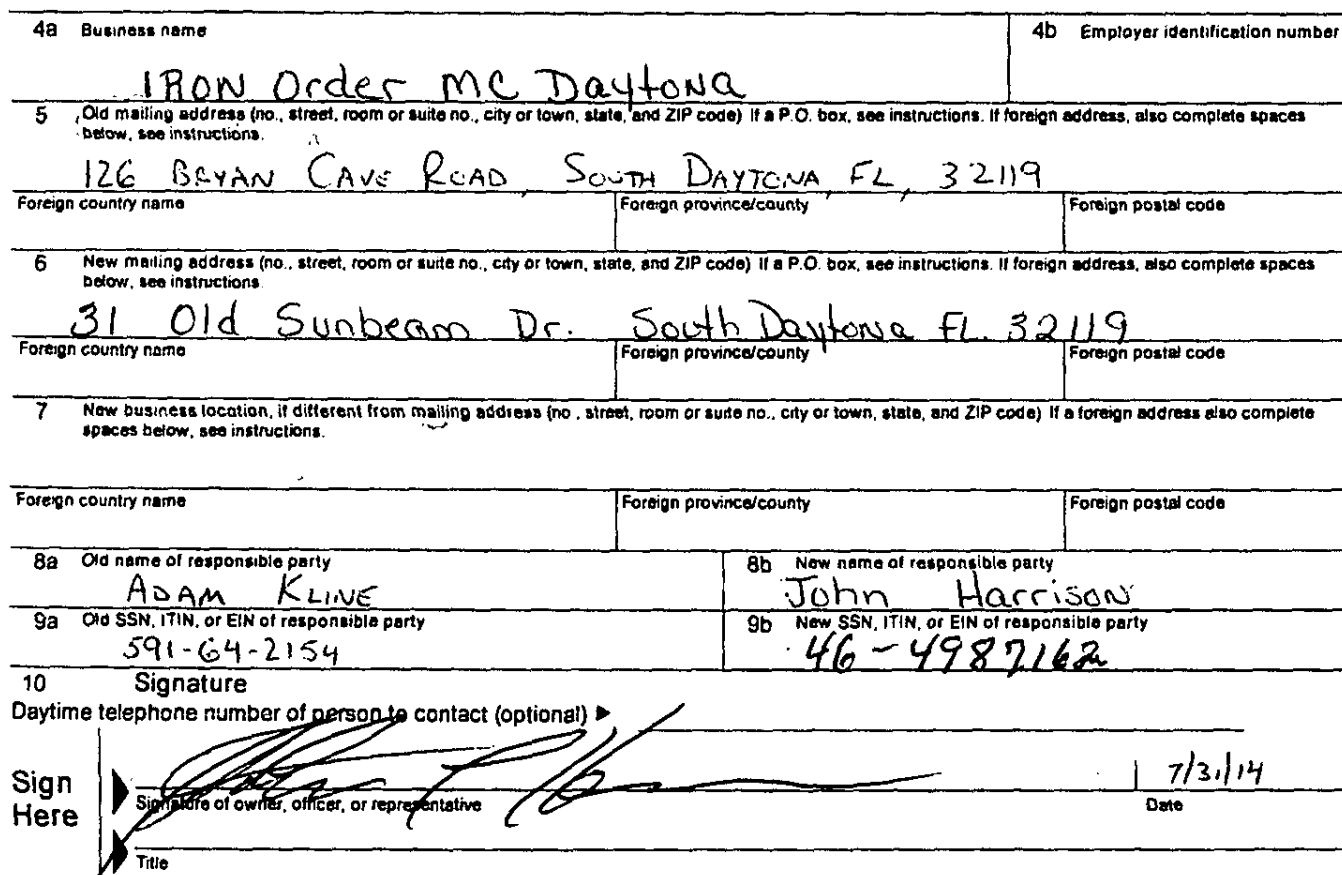 4a Business name 4b Employer identification number
IRON Order MC Daytona
5 Old mailing address (no., street, room or suite no., city or town, state, and ZIP code) If a P.O. box, see instructions. If foreign address, also complete spaces
below, see instructions.
126 BRYAN CAVE ROAD, SOUTH DAYTONA, FL, 32119
Foreign country name Foreign province/county Foreign postal code
6 New mailing address (no., street, room or suite no., city or town, state, and ZIP code) If a P.O. box, see instructions. If foreign address, also complete spaces
below, see instructions.
31 Old Sunbeam Dr. South Daytona FL. 32119
Foreign country name Foreign province/county Foreign postal code
7 New business location, if different from mailing address (no., street, room or suite no., city or town, state, and ZIP code) If a foreign address also complete
spaces below, see instructions.
Foreign country name Foreign province/county Foreign postal code
8a Old name of responsible party 8b New name of responsible party
ADAM KLINE John Harrison
9a Old SSN, ITIN, or EIN of responsible party 9b New SSN, ITIN, or EIN of responsible party
591-64-2154 46-4987162
10 Signature
Daytime telephone number of person to contact (optional) ▶
Sign
Here
7/31/14
Signature of owner, officer, or representative Date
Title